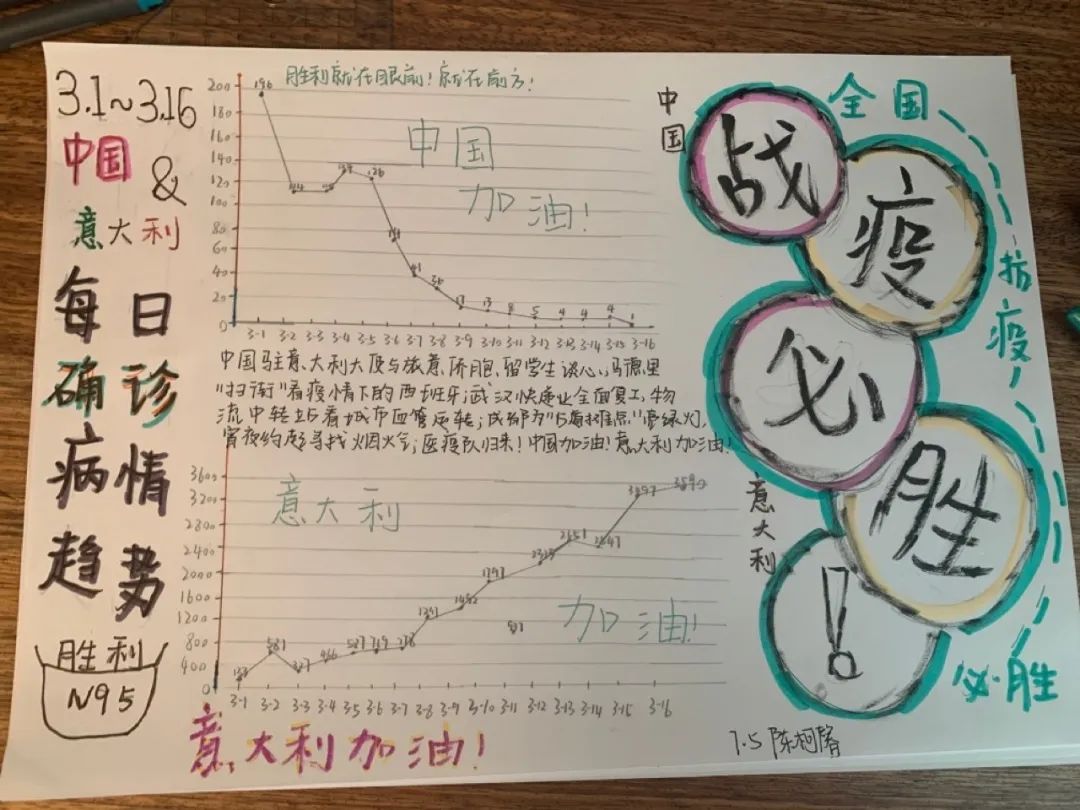 3.1~3.16
中国
&
意大利
每日
确诊
病情
趋势
胜利
N95
胜利就在眼前!就在前方!
中国
加油!
200
180
160
140
120
100
80
60
40
20
0
196
126
41
36
13
8
5
4
4
4
1
3-1 3-2 3-3 3-4 3-5 3-6 3-7 3-8 3-9 3-10 3-11 3-12 3-13 3-14 3-15 3-16
中国驻意大利大使与旅意侨胞、留学生谈心;马德里
"扫街"看疫情下的西班牙;武汉快递业全面复工,物
流中转站看城市血管运转;成都为
宵夜约起寻找烟火气;医疫队归来!中国加油!意大利加油!
意大利
加油!
3600
3200
2800
2400
2000
1600
1200
800
400
0
587
466
587
769
778
1492
1797
2547
3497
3590
3-1 3-2 3-3 3-4 3-5 3-6 3-7 3-8 3-9 3-10 3-11 3-12 3-13 3-14 3-15 3-16
意大利加油!
中国
意大利
战
疫
必
胜
!
全国
抗疫
必胜
7.5 陈柯馨